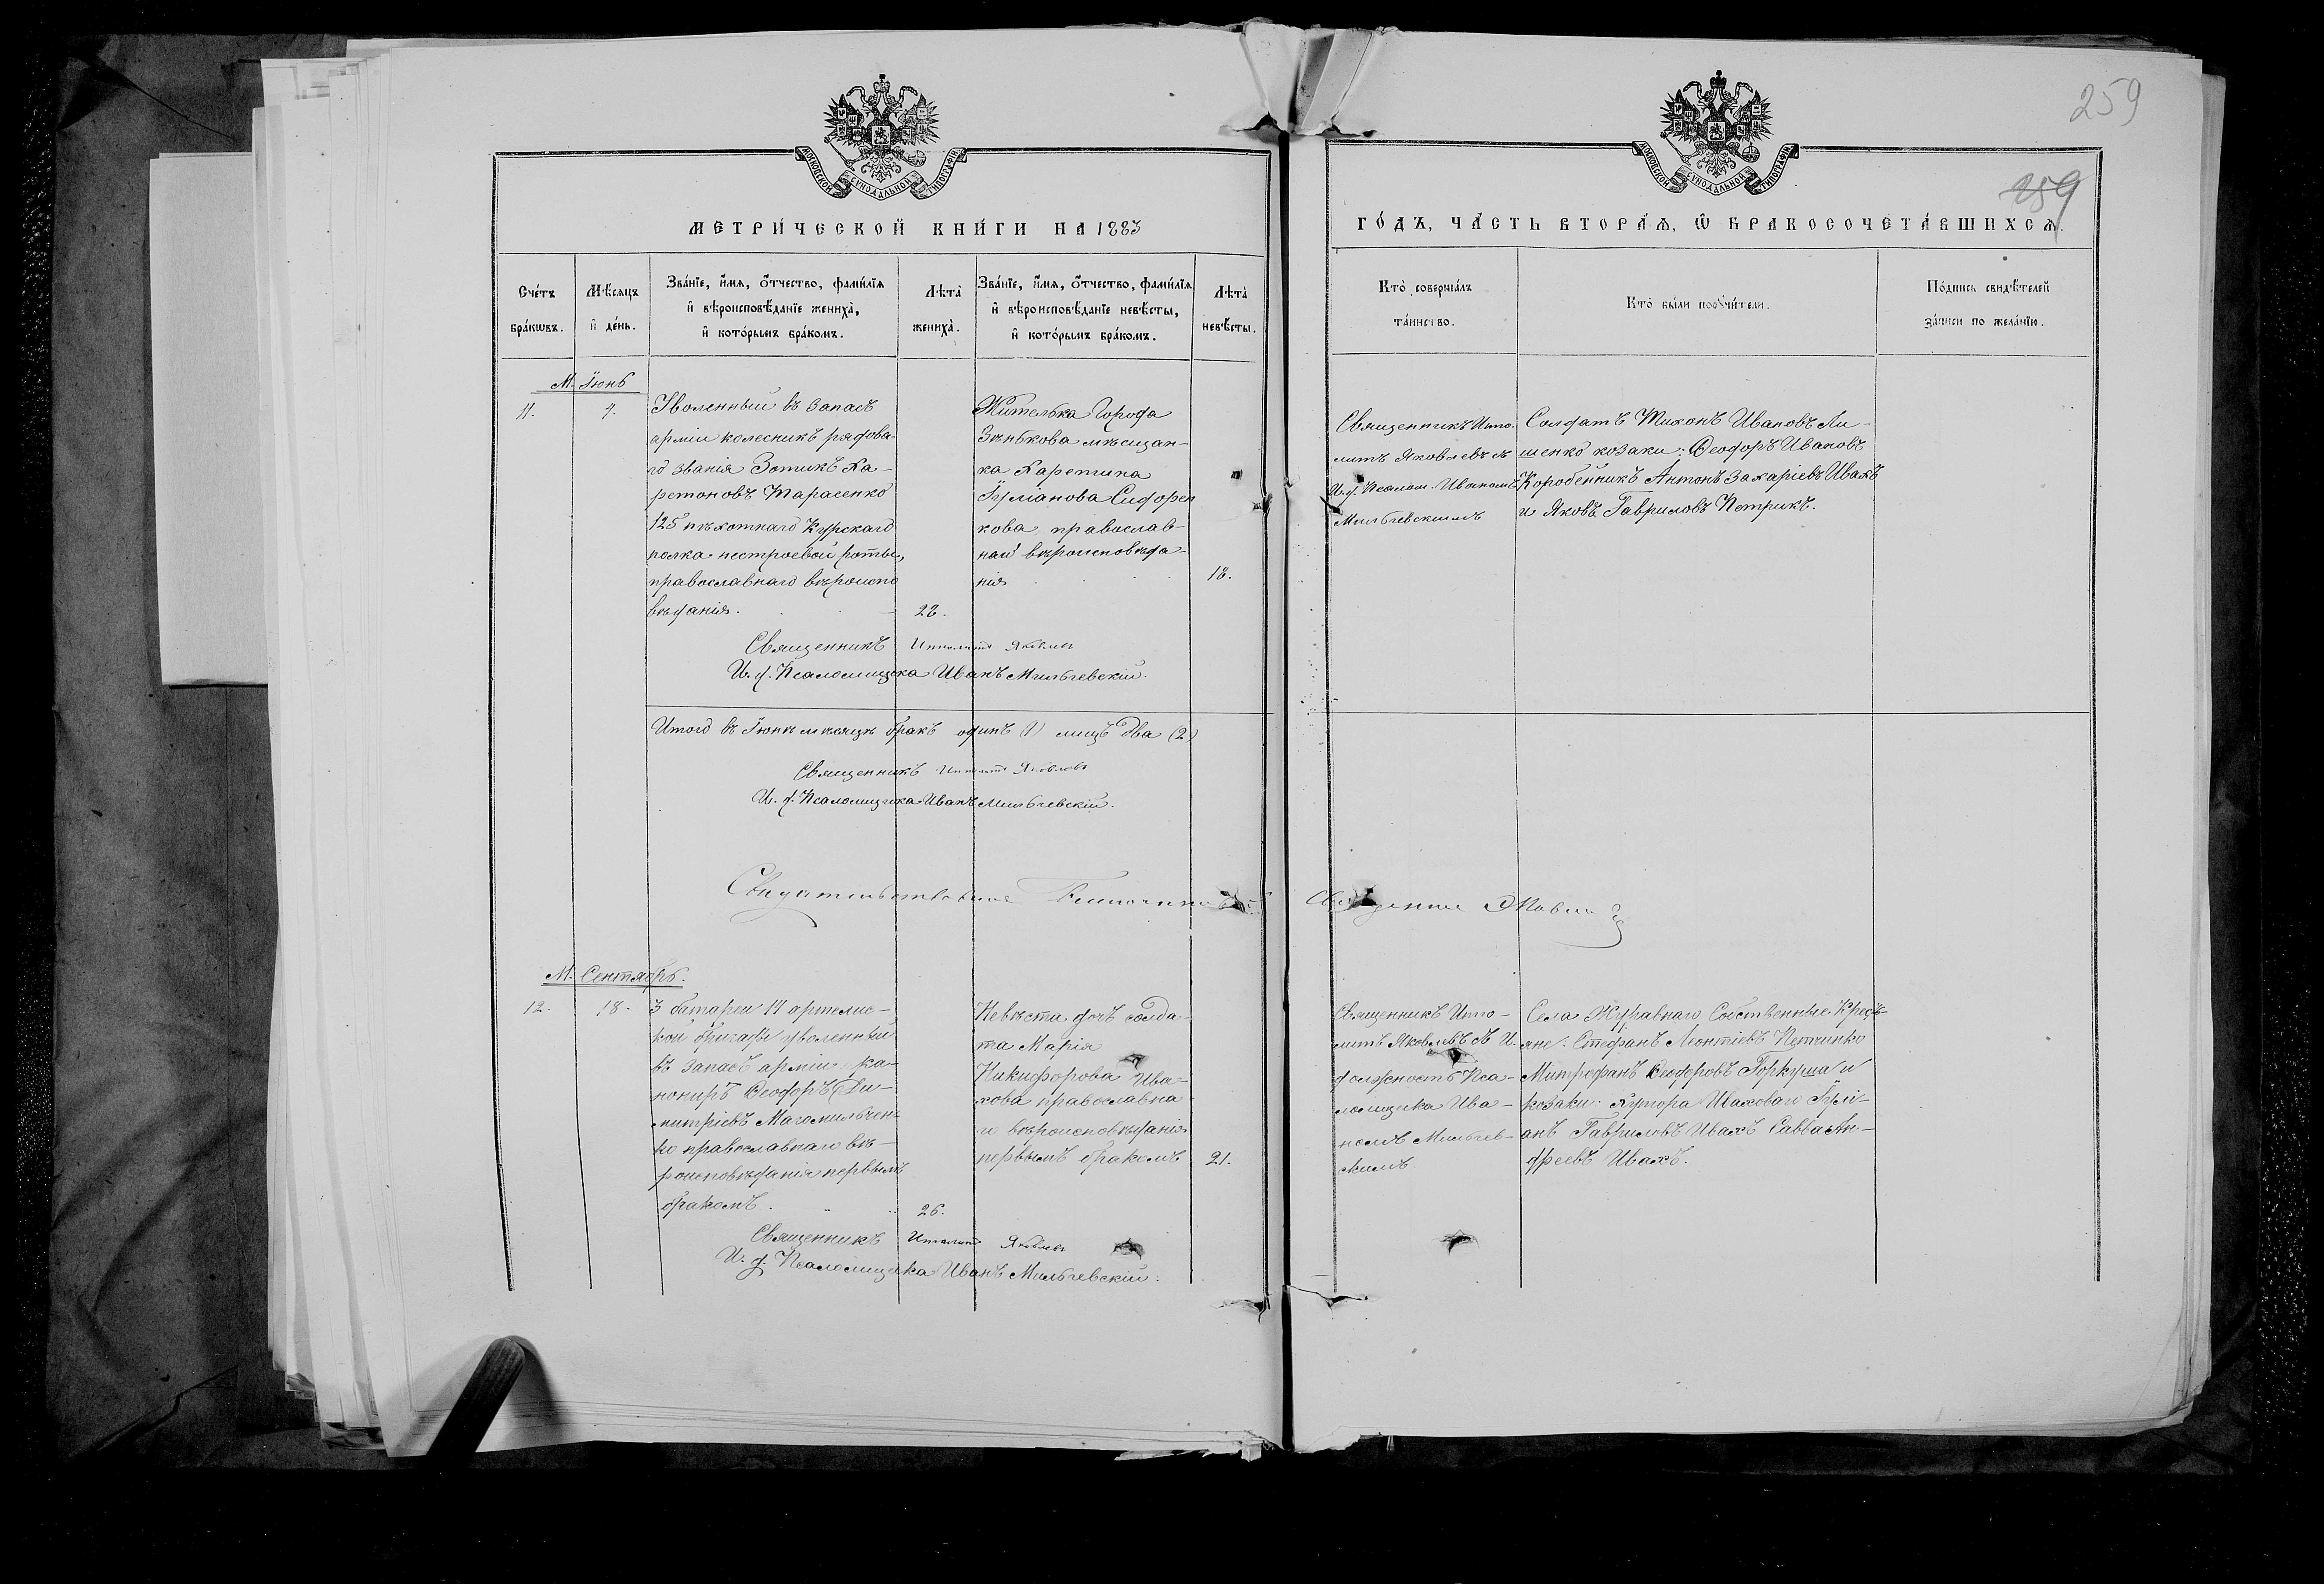 МОСКОВСКОЙ СУНОДАЛЬНОЙ ТИПОГРАФІИ
МЕТРИ́ЧЕСКОЙ КНИ́ГИ НА 1883
Сче́тъ бра́кѡвъ.
Мѣ́сяцъ и҆ де́нь.
Зва́нїе, и҆́мѧ, ѻ҆́тчество, фами́лїѧ
и҆ вѣроисповѣ́данїе жениха̀,
и҆ кото́рымъ бра́комъ.
Лѣта̀ жениха̀.
Зва́нїе, и҆́мѧ, ѻ҆́тчество, фами́лїѧ
и҆ вѣроисповѣ́данїе невѣ́сты,
и҆ кото́рымъ бра́комъ.
Лѣта̀ невѣ́сты.
М. Іюнь
11.
4.
Уволенный въ запасъ
арміи колесникъ рядова-
го званія Зотикъ Ха-
ритоновъ Тарасенко
125 пѣхотнаго Курскаго
полка нестроевой роты,
православнаго вѣроиспо
вѣданія.
28.
Жителька Города
Зѣнькова мѣщан-
ка Харетина
Іуліанова Сидорен
кова православ-
ной вѣроисповѣда-
нія
18.
Священникъ Ипполитъ Яковлевъ
И. д. Псаломщика Иванъ Мильгевскій.
Итого въ Іюнѣ мѣсяцѣ бракъ одинъ (1) лицъ два (2)
Священникъ Ипполитъ Яковлевъ
И. д. Псаломщика Иванъ Мильгевскій.
М. Сентябрь.
12.
18.
3 батареи 11 артелис-
кой бригады уволенный
въ запасъ арміи ка-
нониръ Феодоръ Ди-
митріевъ
ко православнаго вѣ-
роисповѣданія первымъ
бракомъ.
26.
Невѣста дочь солда-
та Марія
Никифорова Ива-
хова православна
го вѣроисповѣданія
первымъ бракомъ
21.
Священникъ Ипполитъ Яковлевъ
И. д. Псаломщика Иванъ Мильгевскій.
259
259
МОСКОВСКОЙ СУНОДАЛЬНОЙ ТИПОГРАФІИ
ГО́ДЪ, ЧА́СТЬ ВТОРА́Ѧ, Ѡ҆ БРАКОСОЧЕТА́ВШИХСѦ.
Кто̀ соверша́лъ
та́инство.
Кто̀ бы́ли порꙋчи́тели.
По́дпись свидѣ́телей
за́писи по жела́нїю.
Священникъ Иппо-
литъ Яковлевъ съ
И. д. Псалом. Иваномъ
Мильгевскимъ
Солдатъ Тихонъ Ивановъ Ли-
шенко козаки: Феодоръ Ивановъ
Коробейникъ Антонъ Захаріевъ Ивахъ
и Яковъ Гавриловъ Петрикъ.
Священникъ Иппо-
литъ Яковлевъ съ И.
должность Пса-
ломщика Ива-
номъ Мильгев-
скимъ.
Села Журавнаго Собственные Кресть-
яне: Стефанъ Леонтіевъ
Митрофанъ Феодоровъ Горкуша и
козаки: Хутора Ивахового Іулі-
анъ Гавриловъ Ивахъ Савва Ан-
дреевъ Ивахъ.